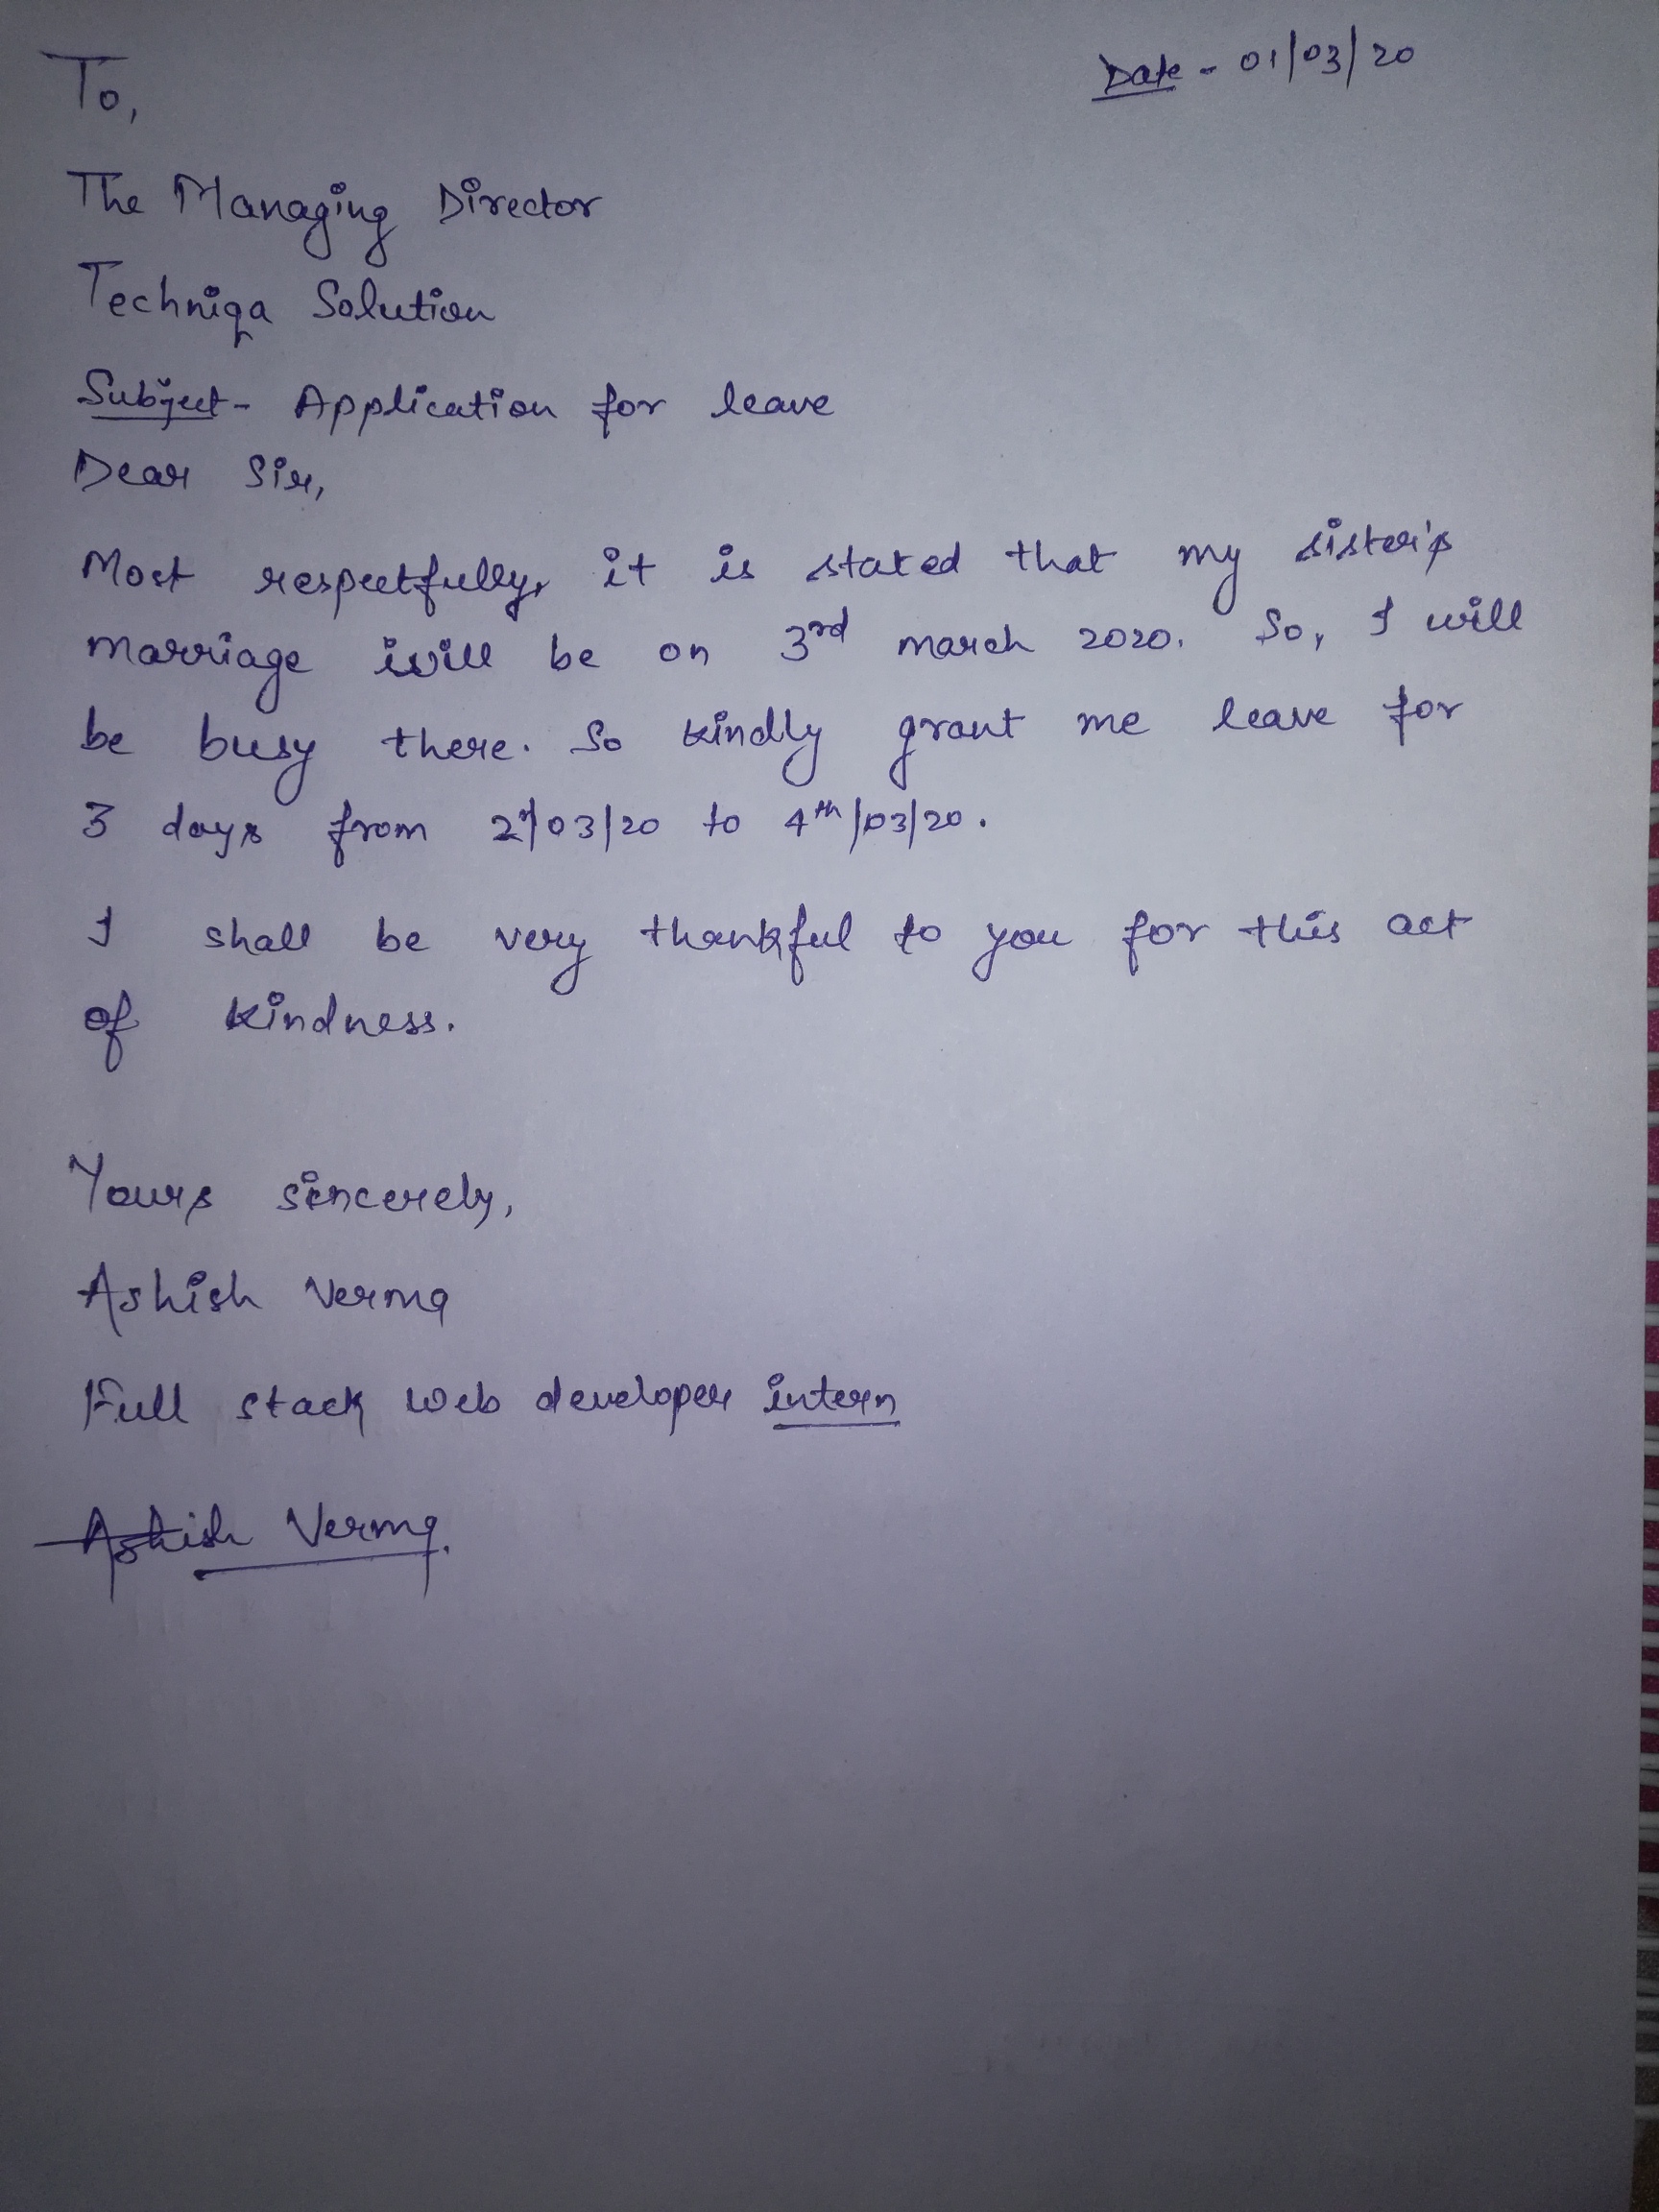 To,
Date - 01/03/20
The Managing Director
Techniqa Solution
Subject- Application for leave
Dear Sir,
Most respectfully, it is stated that my sister's
marriage will be on 3rd march 2020. So, I will
be busy there. So kindly grant me leave for
3 days from 2/03/20 to 4th/03/20.
I shall be very thankful to you for this act
of kindness.
Yours sincerely,
Ashish Verma
Full stack web developer intern
Ashish Verma.